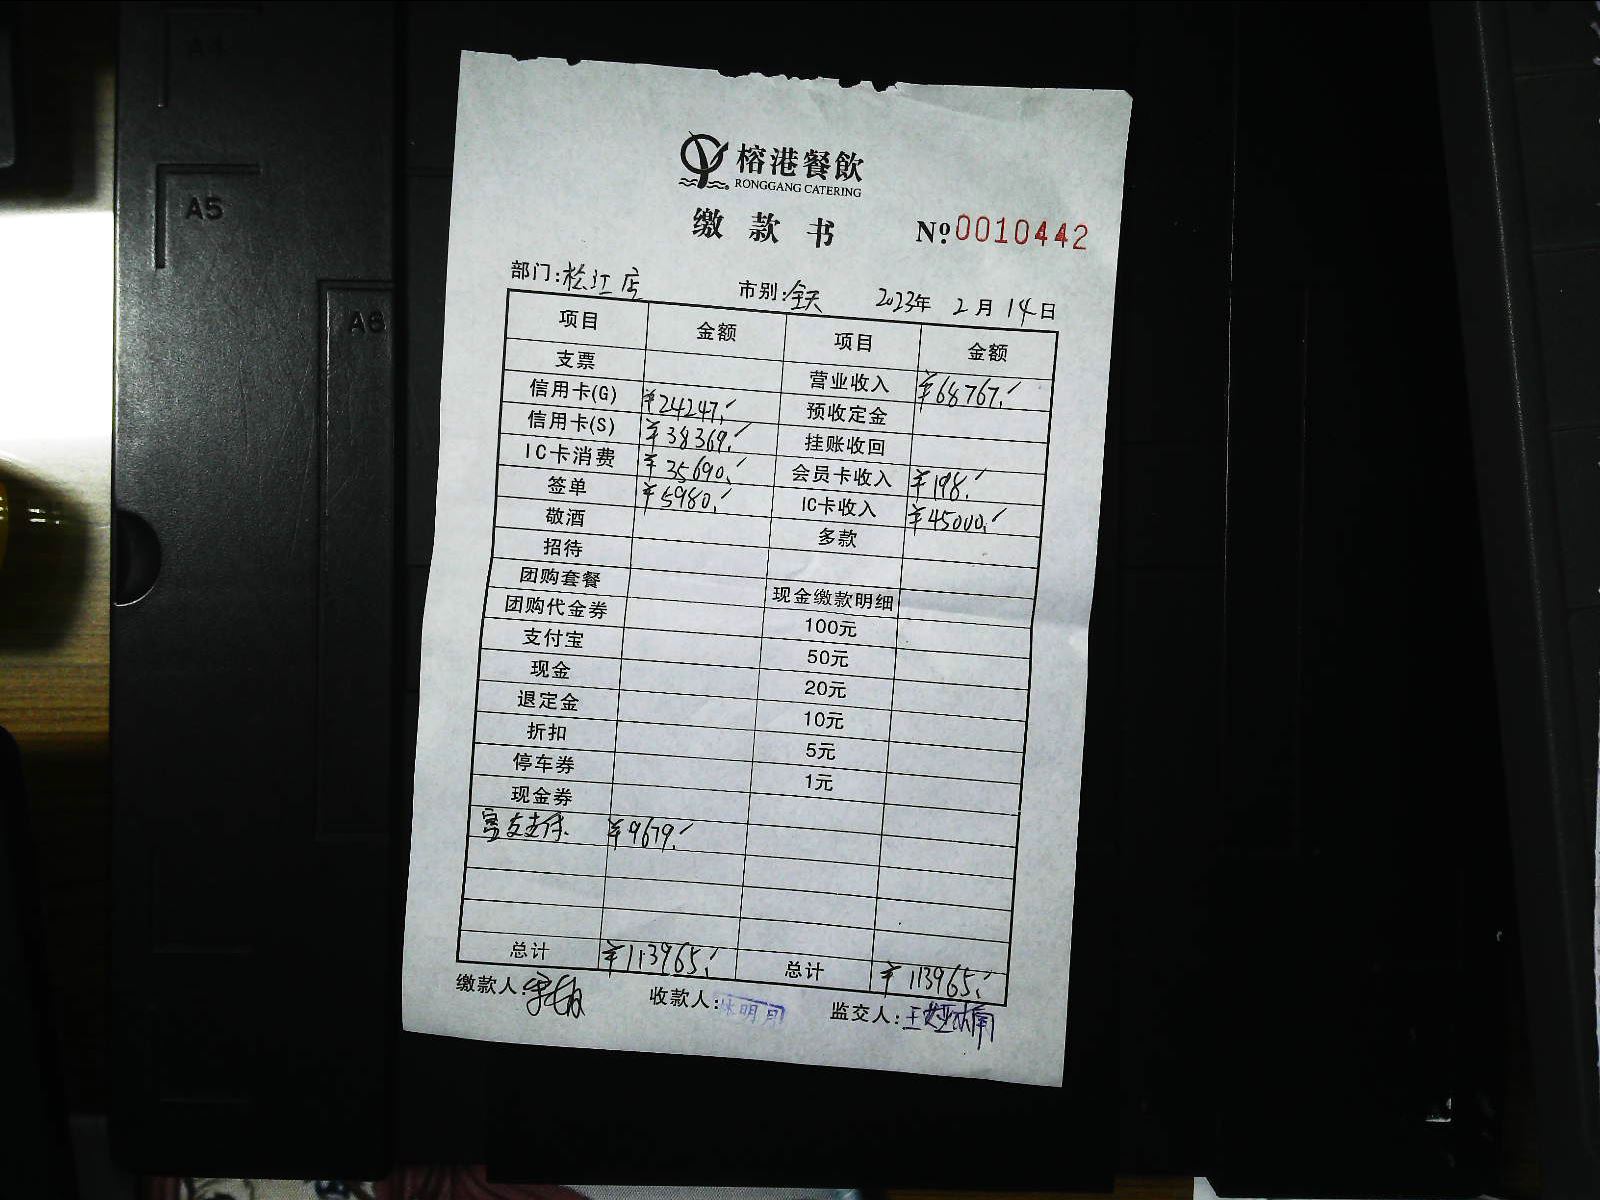 A4
A5
A6
榕港餐飲
RONGGANG CATERING
缴款书 №0010442
部门:松江店 市别:全天 2023年2月14日
项目 金额 项目 金额
支票 营业收入 ¥68767.
信用卡(G) ¥24247. 预收定金
信用卡(S) ¥38369. 挂账收回
IC卡消费 ¥35690. 会员卡收入 ¥198.
签单 ¥5980. IC卡收入 ¥45000.
敬酒 多款
招待
团购套餐 现金缴款明细
团购代金券 100元
支付宝 50元
现金 20元
退定金 10元
折扣 5元
停车券 1元
现金券
支付 ¥9679.
总计 ¥113965. 总计 ¥113965.
缴款人: 收款人:张明月 监交人:王